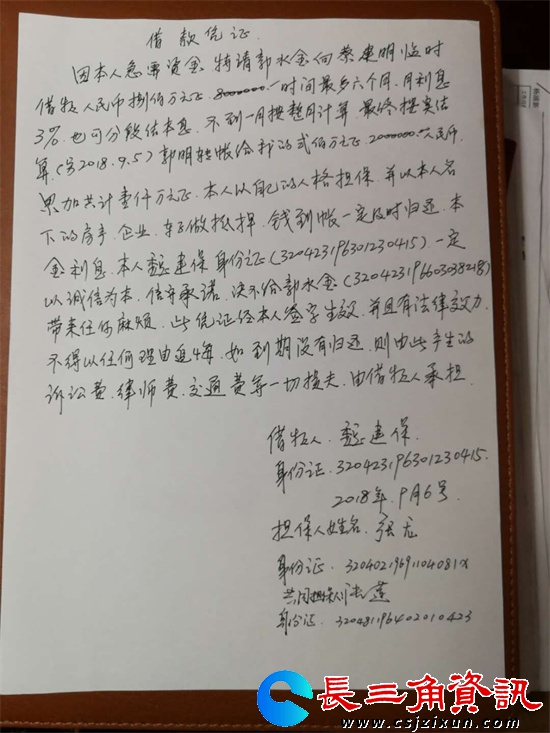 借款凭证
因本人急需资金 特请郭水金向蔡建明临时
借款人民币捌佰万元正.8000000.一时间最多六个月.月利息
3%.也可分段结本息.不到一月按整月计算.最终按实结
算.(另2018.9.5)郭明转帐给我的弍佰万元正2000000一人民币.
累加共计壹仟万元正.本人以自己的人格担保.并以本人名
下的房产.企业.车子做抵押.钱到帐一定及时归还.本
金利息.本人魏建保身份证(320423196301230415)一定
以诚信为本.信守承诺.决不给郭水金(320423196603038218)
带来任何麻烦.此凭证经本人签字生效.并且有法律效力.
不得以任何理由追悔.如到期没有归还.则由此产生的
诉讼费.律师费.交通费等一切损失.由借款人承担.
借款人.魏建保.
身份证.320423196301230415.
2018年.9月6号.
担保人姓名.张龙
身份证.32040219691104081X
共同担保人 莲
身份证:320481196402010423
長三角資訊
www.csjzixun.com